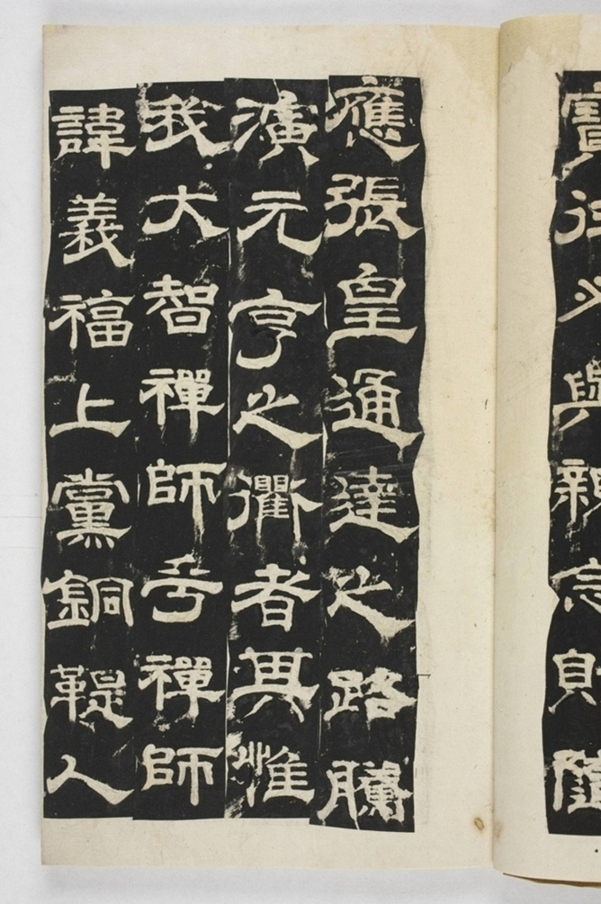 與親則隨
應張皇通達之路騰
演元亨之衢者其惟
我大智禪師乎禪師
諱義福上黨銅鞮人